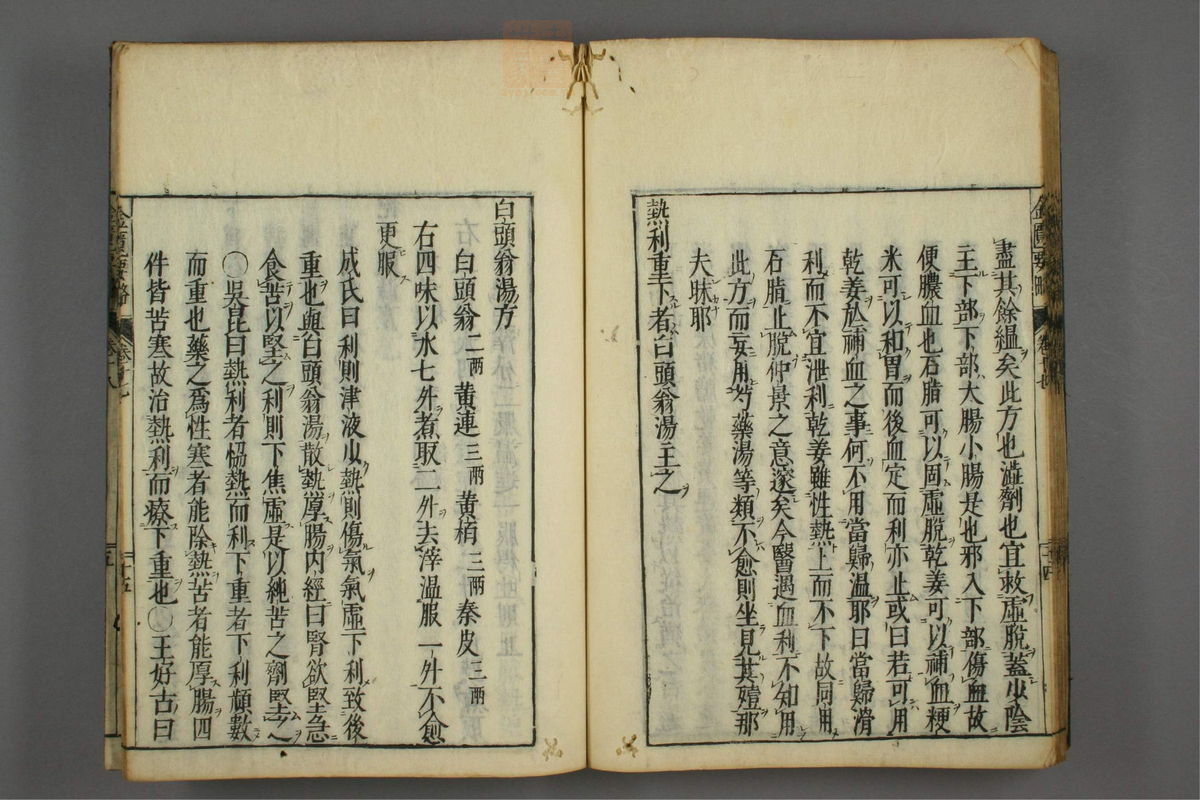 盡其餘緼矣此方也澁劑也宜救虛脫蓋少陰
主下部下部大腸小腸是也邪入下部傷血故
便膿血也石脂可以固虛脫乾姜可以補血粳
米可以和胃而後血定而利亦止或曰若可用
乾姜於補血之事何不用當歸溫耶曰當歸滑
利而不宜泄利乾姜雖性熱上而不下故同用
石脂止脫仲景之意邃矣今醫遇血利不知用
此方而妄用芍藥湯等類不愈則坐見其殪那
夫昧耶
熱利重下者白頭翁湯主之
金匱要略
卷十七
二十四
白頭翁湯方
白頭翁二兩 黄連三兩 黄栢三兩 秦皮三兩
右四味以水七升煮取二升去滓温服一升不愈
更服
成氏曰利則津液少熱則傷氣氣虛下利致後
重也與白頭翁湯散熱厚腸内經曰腎欲堅急
食苦以堅之利則下焦虛是以純苦之劑堅之
○吳昆曰熱利者恊熱而利下重者下利頻數
而重也藥之爲性寒者能除熱苦者能厚腸四
件皆苦寒故治熱利而療下重也○王好古曰
金匱要略
卷十七
二十五